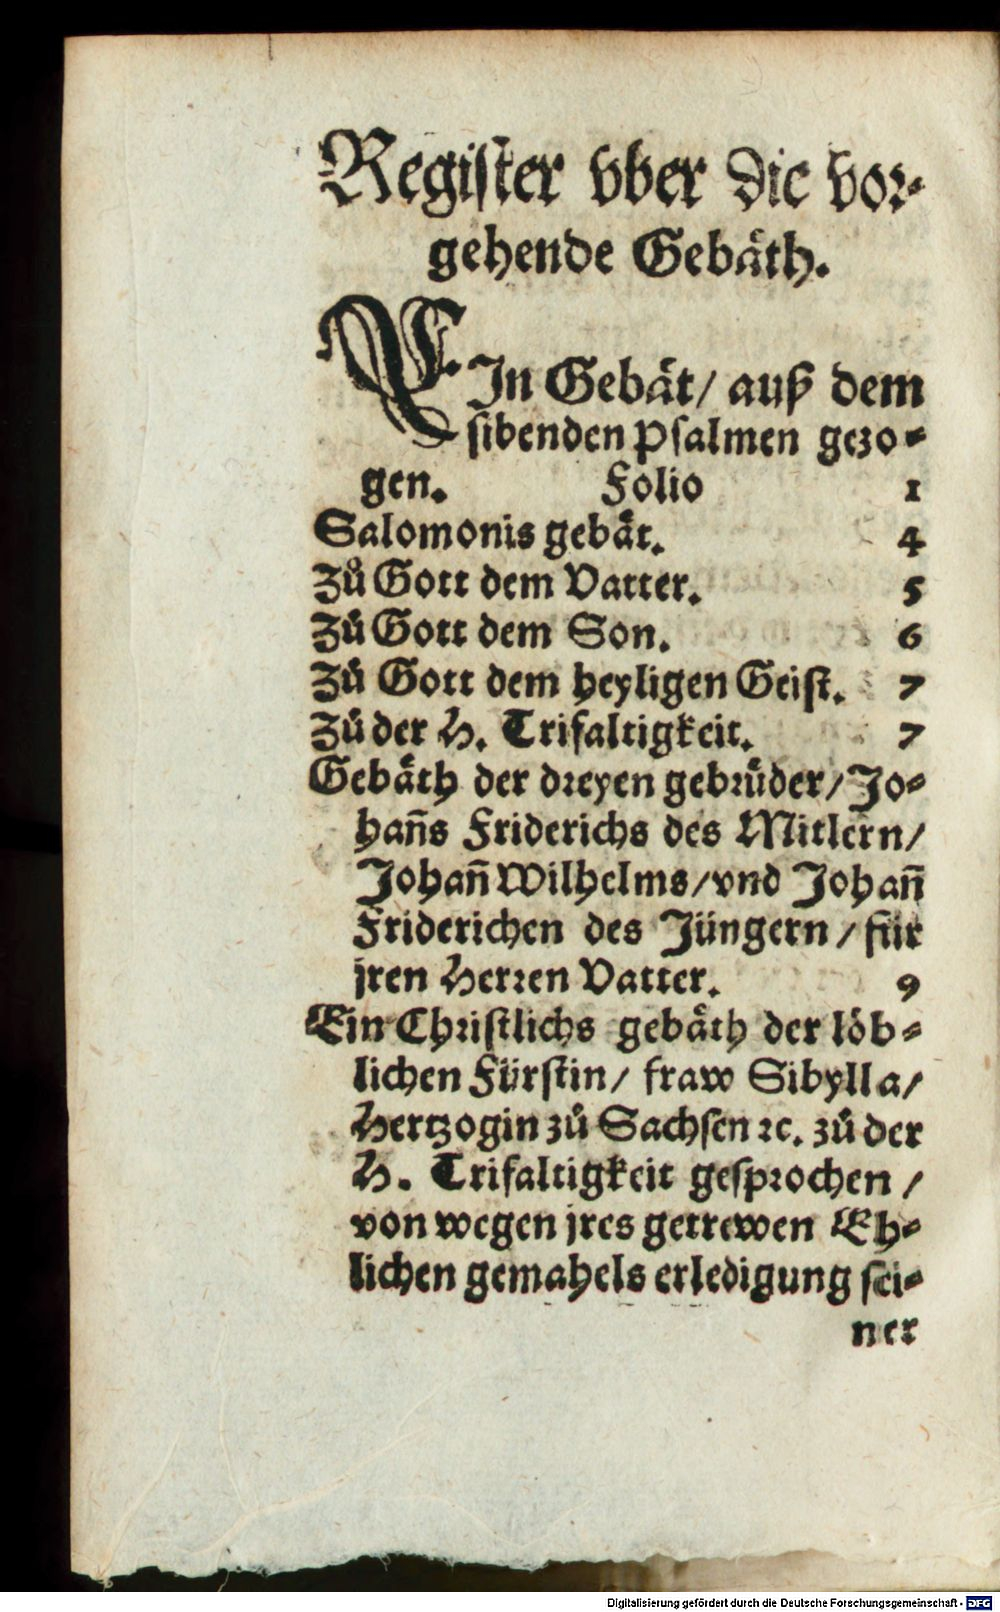 Register vber die vor-
gehende Gebäth.
EIn Gebät/ auß dem
sibenden Psalmen gezo-
gen. Folio 1
Salomonis gebät. 4
Zů Gott dem Vatter. 5
Zů Gott dem Son. 6
Zů Gott dem heyligen Geist. 7
Zů der H. Trifaltigkeit. 7
Gebäth der dreyen gebrüder/ Jo-
han̄s Friderichs des Mitlern/
Johan̄ Wilhelms/ vnd Johan̄
Friderichen des Jüngern/ für
jren Herren Vatter. 9
Ein Christlichs gebäth der löb-
lichen Fürstin/ fraw Sibylla/
Hertzogin zů Sachsen ꝛc. zů der
H. Trifaltigkeit gesprochen/
von wegen jres getrewen Eh-
lichen gemahels erledigung sei-
ner
Digitalisierung gefördert durch die Deutsche Forschungsgemeinschaft - DFG